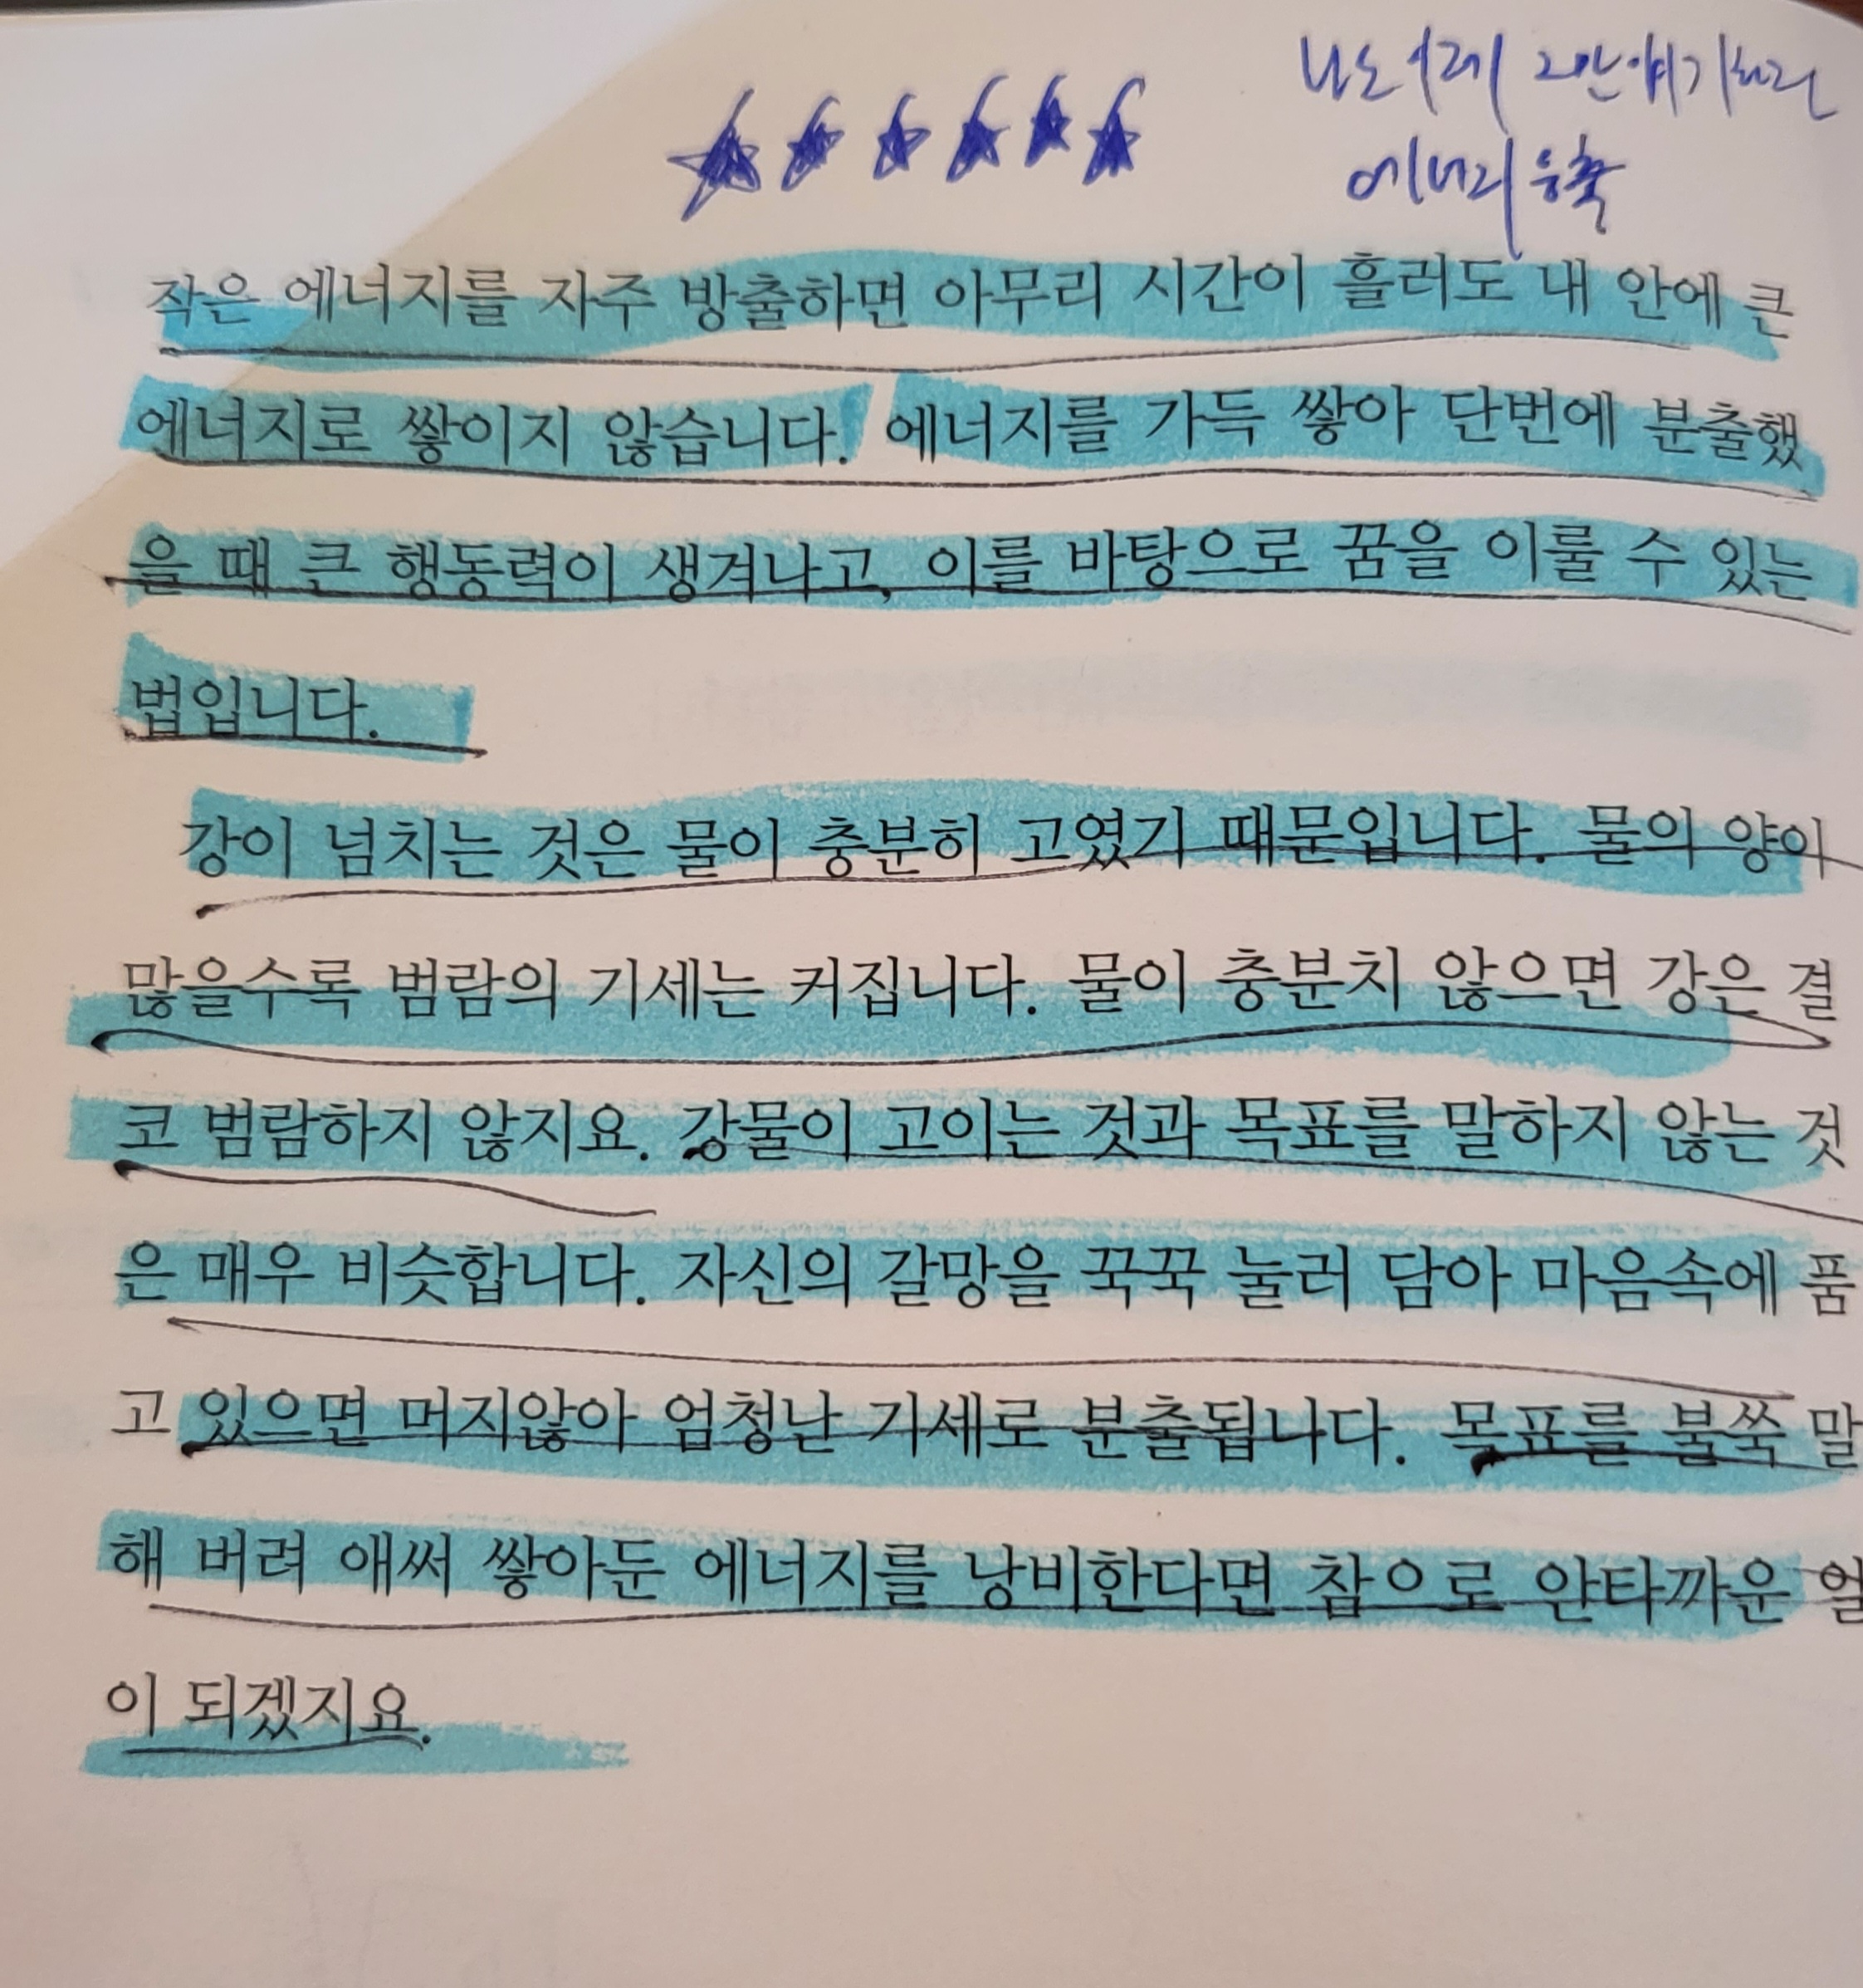 나도 이제 그만 얘기하고
에너지 응축
작은 에너지를 자주 방출하면 아무리 시간이 흘러도 내 안에 큰
에너지로 쌓이지 않습니다. 에너지를 가득 쌓아 단번에 분출했
을 때 큰 행동력이 생겨나고, 이를 바탕으로 꿈을 이룰 수 있는
법입니다.
강이 넘치는 것은 물이 충분히 고였기 때문입니다. 물의 양이
많을수록 범람의 기세는 커집니다. 물이 충분치 않으면 강은 결
코 범람하지 않지요. 강물이 고이는 것과 목표를 말하지 않는 것
은 매우 비슷합니다. 자신의 갈망을 꾹꾹 눌러 담아 마음속에 품
고 있으면 머지않아 엄청난 기세로 분출됩니다. 목표를 불쑥 말
해 버려 애써 쌓아둔 에너지를 낭비한다면 참으로 안타까운 일
이 되겠지요.